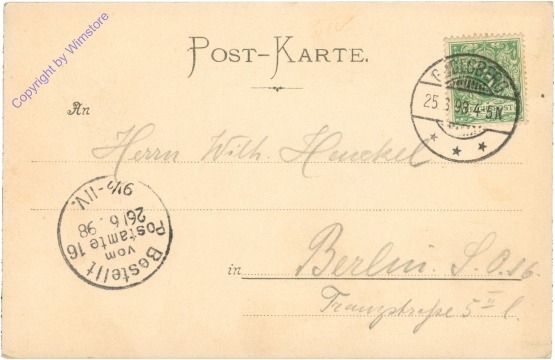 Copyright by Wimstore
POST-KARTE.
25.3.98.4-5N
* * *
An
Herrn Wilh. Henckel
Bestellt
vom
Postamte 16
26/6.98
9½-11V.
in Berlin. S.O.16.
5 II l.